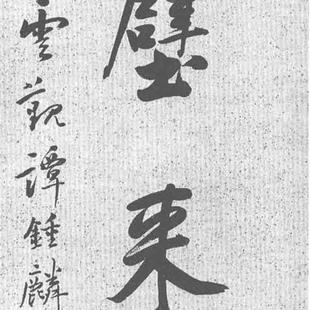 壁来
雲覲譚鍾麟